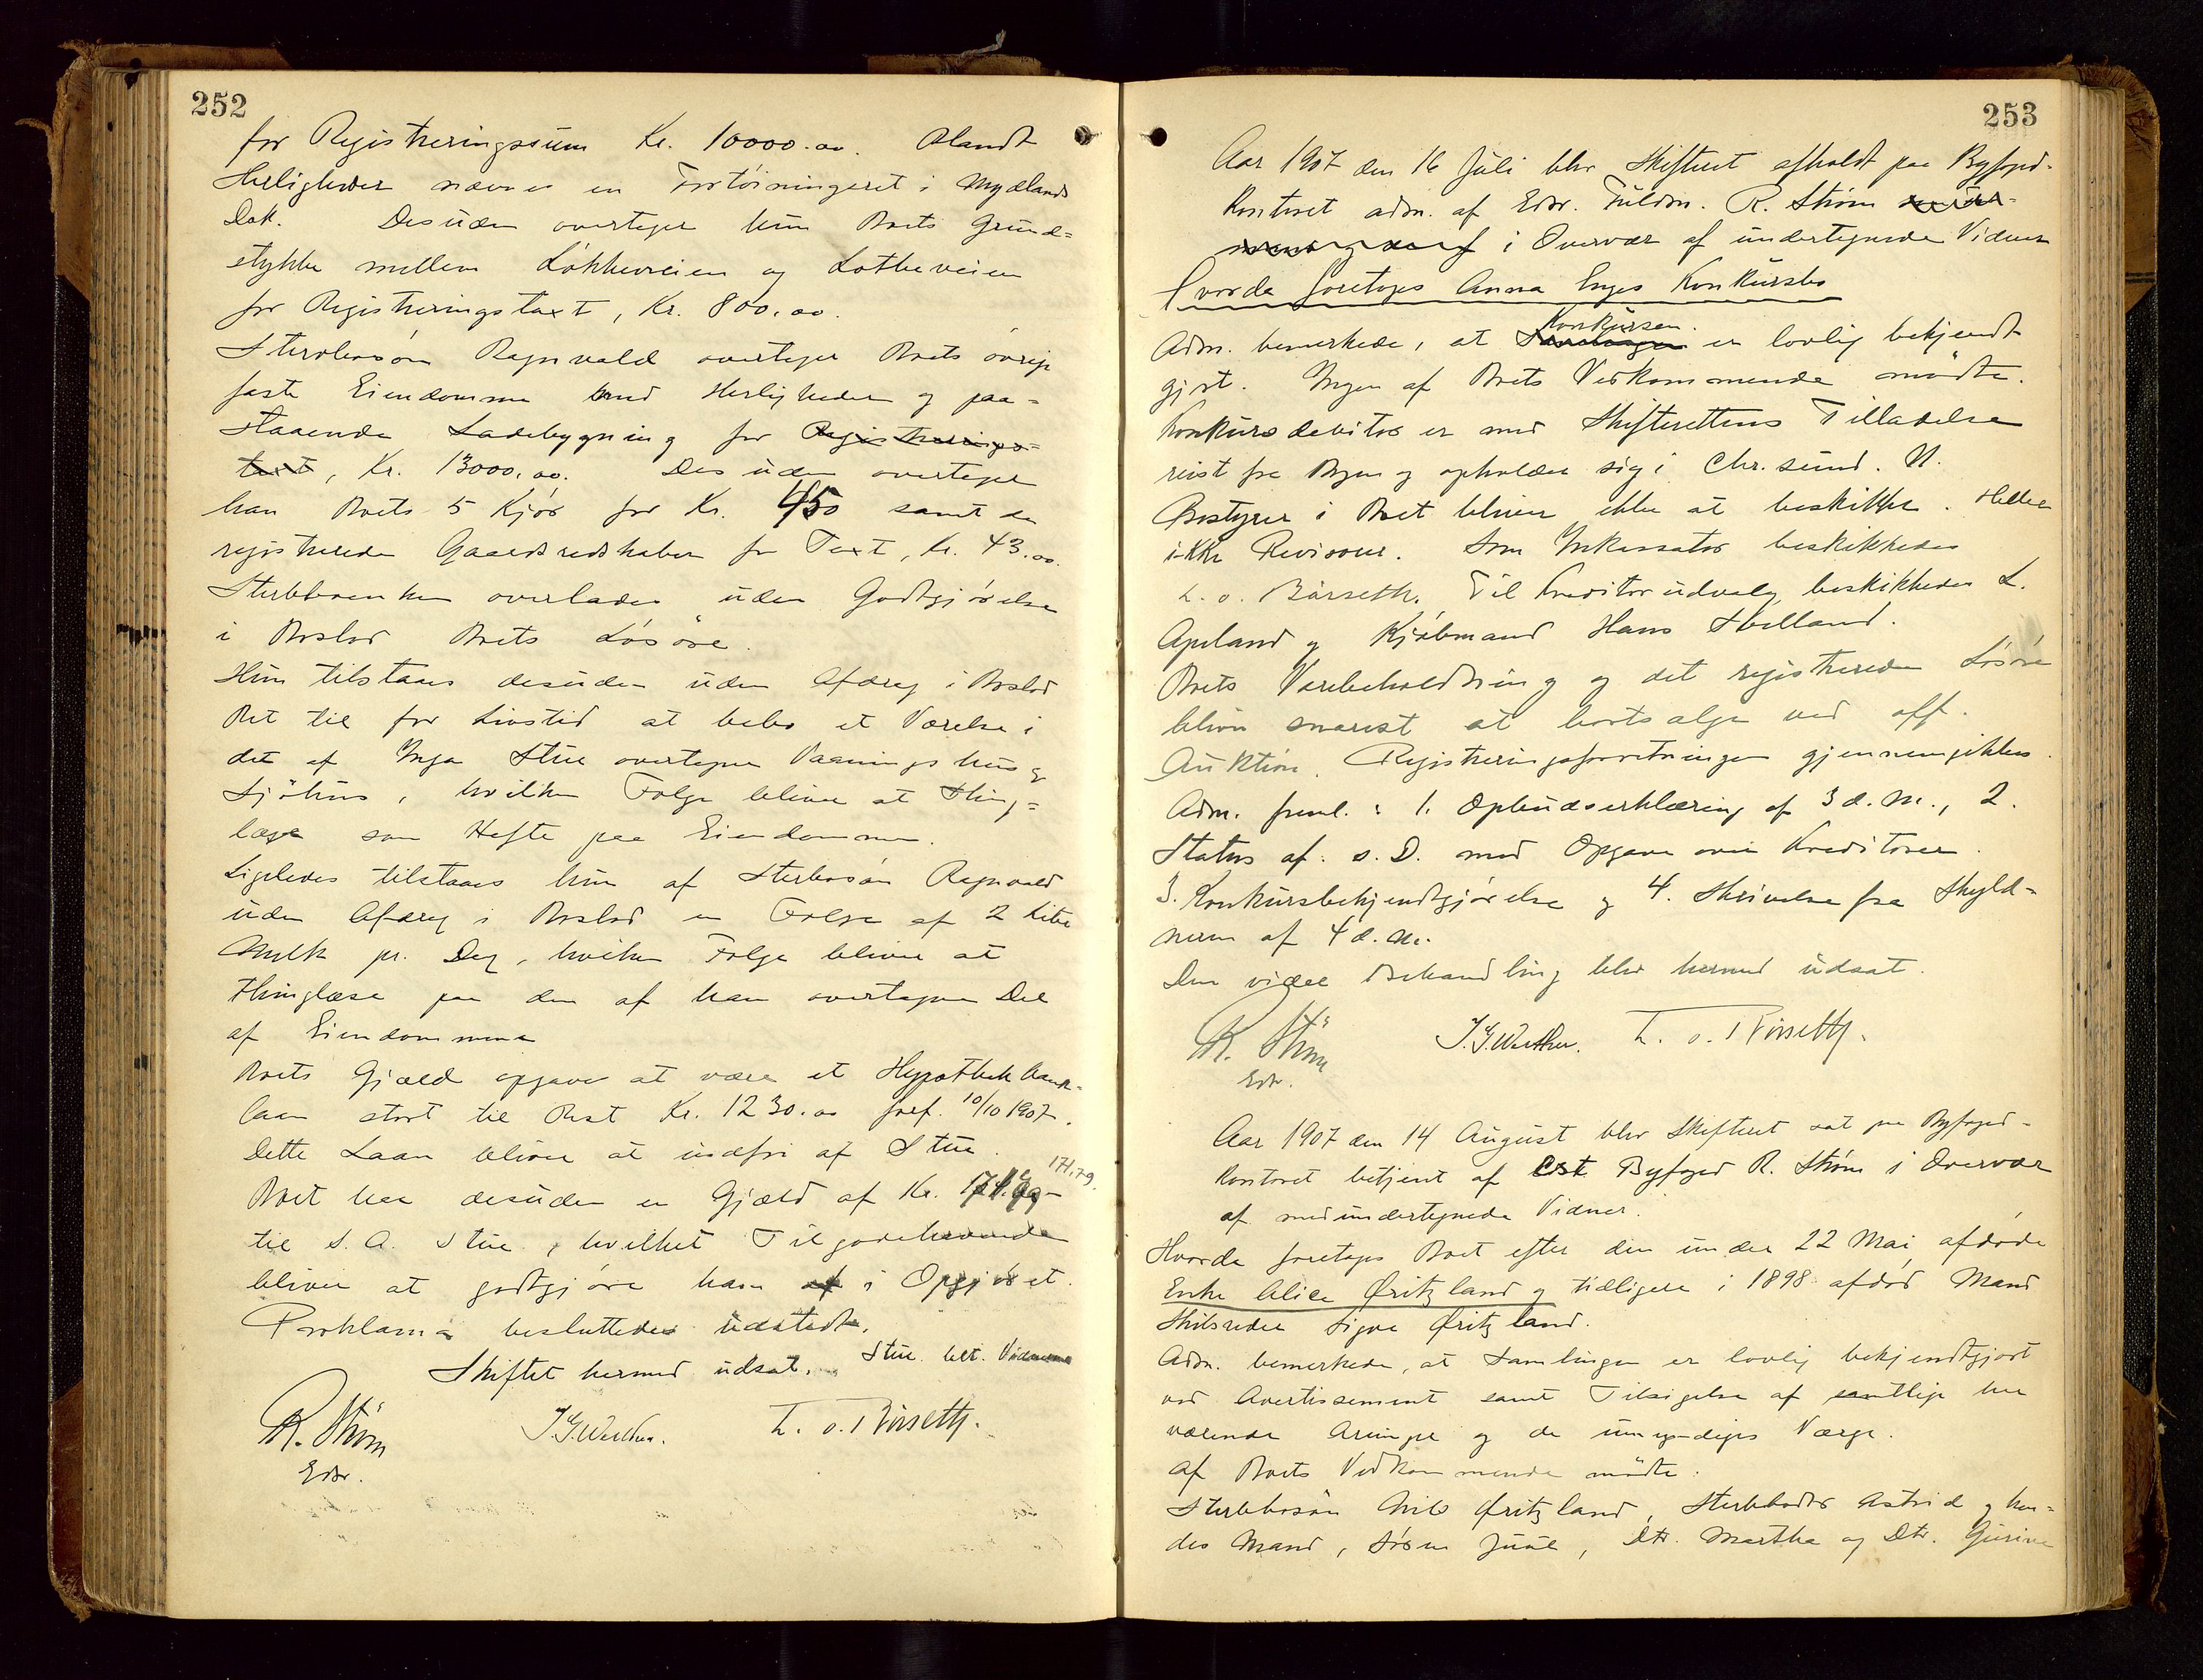 252
for Registreringssum Kr. 10000.00. Blandt
Herligheder nævnes en Fortöiningsret i Mydlands
Dok. Desuden overtager hun Boets Grund=
stykke mellem Lökkeveien og Lotheveien
for Registreringstaxt, Kr. 800.00.
Sterbosön Ragnvald overtager Boets övrige
faste Eiendomme med Herligheder og paa=
staaende Ladebygning for Registrerings=
taxt, Kr. 13000.00. Des uden overtager
han Boets 5 Kjör for Kr. 450 samt de
registrerede Gaardsredskaber for Taxt, Kr. 43.00.
Sterbboenken overlades uden Godtgjörelse
i Boslod Boets Lösöre.
Hun tilstaaes desuden uden Afdrag i Boslod
Ret til for Livstid at bebo et Værelse i
det af Inga Stue overtagne Vaaningshus og
Sjöhus, hvilken Folge bliver at thing=
læse som Hefte paa Eiendommen.
Ligeledes tilstaaes hun af Sterbosön Ragnvald
uden Afdrag i Boslod en Folge af 2 Liter
Mælk pr. Dag, hvilken Folge bliver at
thinglæse paa den af ham overtagne Del
af Eiendommene
Boets Gjæld opgaves at være et Hypothekbank-
laan stort til Rest Kr. 1230.00 pref. 10/10 1907.
Dette Laan bliver at indfri af Stue.
Boet har desuden en Gjæld af Kr. 171.79- 171.79.
til S. A. Stue, hvilket Tilgodehavende
bliver at godtgjöre ham af i Opgjöret.
Proklama besluttedes udstedt.
Skiftet hermed udsat. Stue bet. Vidnerne
R. Ström J. G. Werther. L. o. Börseth.
Edsv.
253
Aar 1907 den 16 Juli blev Skifteret afholdt paa Byfoged-
Kontoret adm. af Edsv. Fuldm. R. Ström
i Overvær af undertegnede Vidner
Hvorda foretoges Anna Enges Konkursbo
Konkursen
Adm. bemerkede, at Samlingen er lovlig bekjendt
gjort. Ingen af Boets Vedkommende mödte.
Konkursdebitor er med Skifterettens Tilladelse
reist fra Byen og opholder sig i Chr.sund. N.
Bestyrer i Boet bliver ikke at beskikke. Heller
ikke Revisorer. Som Inkassator beskikkedes
L. o. Börseth. Til Kreditorudvalg beskikkedes L.
Apeland og Kjöbmand Hans Helland.
Boets Varebeholdning og det registrerede Lösöre
bliver snarest at bortsælge ved off.
Auktion. Registreringsforretningen gjennemgikkes.
Adm. freml.: 1. Opbudserklæring af 3 d. M., 2.
Status af s. D. med Opgave over Kreditorer.
3. Konkursbekjendtgjörelse og 4. Skrivelse fra Skyld-
neren af 4 d. M.
Den videre Behandling blev hermed udsat.
R. Ström J. G. Werther. L. o. Börseth.
Edsv.
Aar 1907 den 14 August blev Skifteret sat paa Byfoged-
kontoret betjent af Cst. Byfoged R. Ström i Overvær
af medundertegnede Vidner.
Hvorda foretoges Boet efter den under 22 Mai afdöde
Enke Alice Øritzland og tidligere i 1898 afdöd Mand
Skibsreder Sigve Øritzland.
Adm. bemerkede, at Samlingen er lovlig bekjendtgjort
ved Avertissement samt Tilsigelse af samtlige her
værende Arvinger og de umyndiges Værge.
Af Boets Vedkommende mödte:
Sterbbosön Nils Øritzland, Sterbbodtr Astrid og hen=
des Mand, Sören Juul, Dtr. Martha og Dtr. Gurine